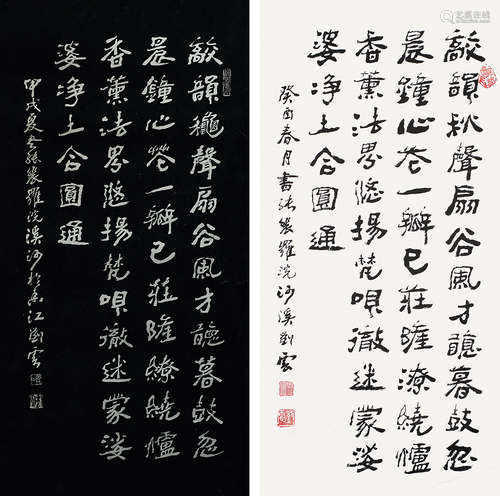 敲韻穐聲扇谷風才聽暮鼓忽
晨鐘心花一瓣已莊繚繞爐
香薰法界悠揚梵唄徹迷蒙娑
婆淨土合圓通
甲戌夏羅浣溪沙於香江劉雲
敲韻秋聲扇谷風才聽暮鼓忽
晨鐘心花一瓣已莊繚繞爐
香薰法界悠揚梵唄徹迷蒙娑
婆淨土合圓通
癸酉春月書羅浣沙溪劉雲
艺狐在线